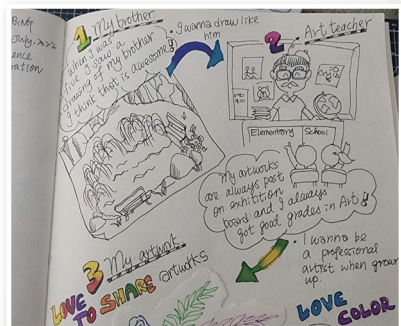 Bing
July, 2022
ence
ration
1 My brother
When I was
five I saw a
drawing of my brother
I think that is awesome!
• I wanna draw like
him
2 Art teacher
Elementary School
My artworks
are always post
on exhibition
board and I always
got good grades in Art!
• I wanna be
a professional
artist when grow
up.
3 My artwork
LOVE
TO SHARE artworks
LOVE
COLOR